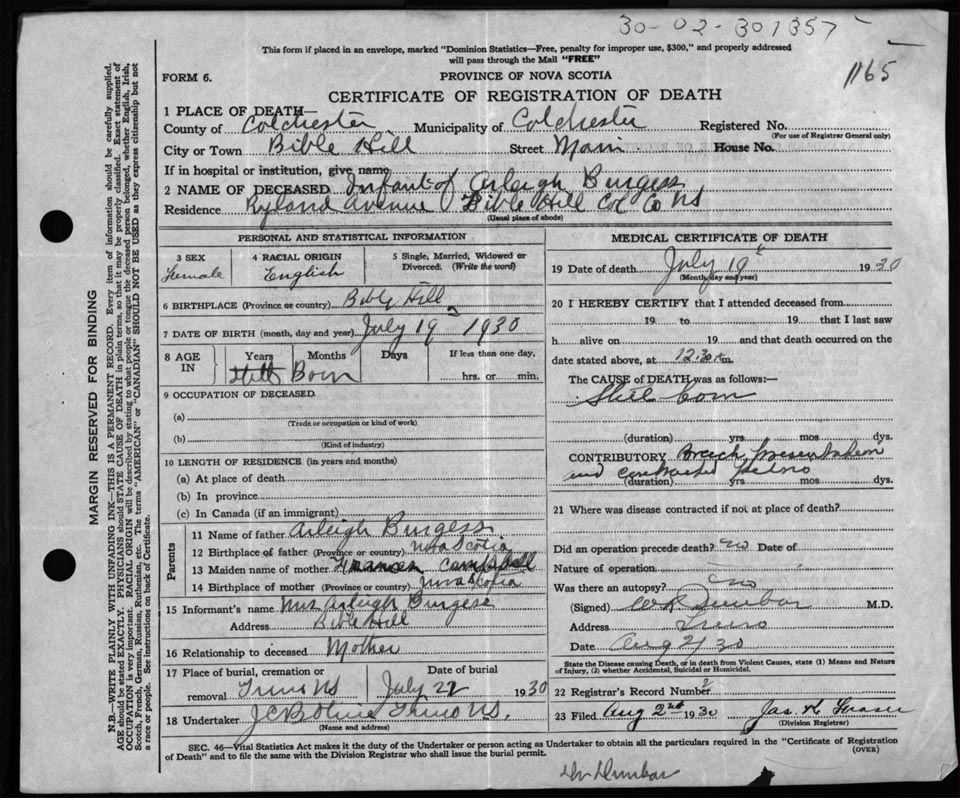 30-02-301357
This form if placed in an envelope, marked "Dominion Statistics—Free, penalty for improper use, $300," and properly addressed
will pass through the Mail "FREE"
1165
FORM 6.
PROVINCE OF NOVA SCOTIA
CERTIFICATE OF REGISTRATION OF DEATH
1 PLACE OF DEATH—
County of Colchester Municipality of Colchester Registered No.
(For use of Registrar General only)
City or Town Bible Hill Street Main House No.
If in hospital or institution, give name
2 NAME OF DECEASED Infant of Arleigh Burgess
Residence Ryland Avenue Bible Hill Col Co NS
(Usual place of abode)
PERSONAL AND STATISTICAL INFORMATION
3 SEX Female
4 RACIAL ORIGIN English
5 Single, Married, Widowed or Divorced. (Write the word)
6 BIRTHPLACE (Province or country) Bible Hill
7 DATE OF BIRTH (month, day and year) July 19 1930
8 AGE IN Years Months Days If less than one day,
Still Born hrs. or min.
9 OCCUPATION OF DECEASED
(a)
(Trade or occupation or kind of work)
(b)
(Kind of industry)
10 LENGTH OF RESIDENCE (in years and months)
(a) At place of death
(b) In province
(c) In Canada (if an immigrant)
Parents
11 Name of father Arleigh Burgess
12 Birthplace of father (Province or country) Nova Scotia
13 Maiden name of mother Frances Campbell
14 Birthplace of mother (Province or country) Nova Scotia
15 Informant's name Mrs Arleigh Burgess
Address Bible Hill
16 Relationship to deceased Mother
17 Place of burial, cremation or removal Truro NS
Date of burial July 22 1930
18 Undertaker Truro NS.
(Name and address)
MEDICAL CERTIFICATE OF DEATH
19 Date of death July 19 1930
(Month, day and year)
20 I HEREBY CERTIFY that I attended deceased from
19 to 19 that I last saw
h alive on 19 and that death occurred on the
date stated above, at 12.30 m.
The CAUSE of DEATH was as follows:—
Still born
(duration) yrs mos dys.
CONTRIBUTORY Breech presentation
and contracted pelvis
(duration) yrs mos dys.
21 Where was disease contracted if not at place of death?
Did an operation precede death? no Date of
Nature of operation
Was there an autopsy? no
(Signed) Dunbar M.D.
Address Truro
Date Aug 2/30
State the Disease causing Death, or in death from Violent Causes, state (1) Means and Nature
of Injury, (2) whether Accidental, Suicidal or Homicidal.
22 Registrar's Record Number 2
23 Filed Aug 2nd 1930 Jas. Fraser
(Division Registrar)
SEC. 46—Vital Statistics Act makes it the duty of the Undertaker or person acting as Undertaker to obtain all the particulars required in the "Certificate of Registration
of Death" and to file the same with the Division Registrar who shall issue the burial permit. (OVER)
Dr Dunbar
MARGIN RESERVED FOR BINDING
N.B.—WRITE PLAINLY WITH UNFADING INK—THIS IS A PERMANENT RECORD. Every item of information should be carefully supplied.
AGE should be stated EXACTLY. PHYSICIANS should STATE CAUSE OF DEATH in plain terms, so that it may be properly classified. Exact statement of
OCCUPATION is very important. RACIAL ORIGIN will be described by stating to what people or tongue the deceased person belonged, whether English, Irish,
Scotch, French, German, Russian, Ruthenian, etc. The terms "AMERICAN" or "CANADIAN" SHOULD NOT BE USED as they express citizenship but not
a race or people. See instructions on back of Certificate.